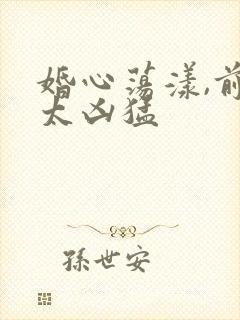 婚心荡漾,前
太凶猛
孫世安